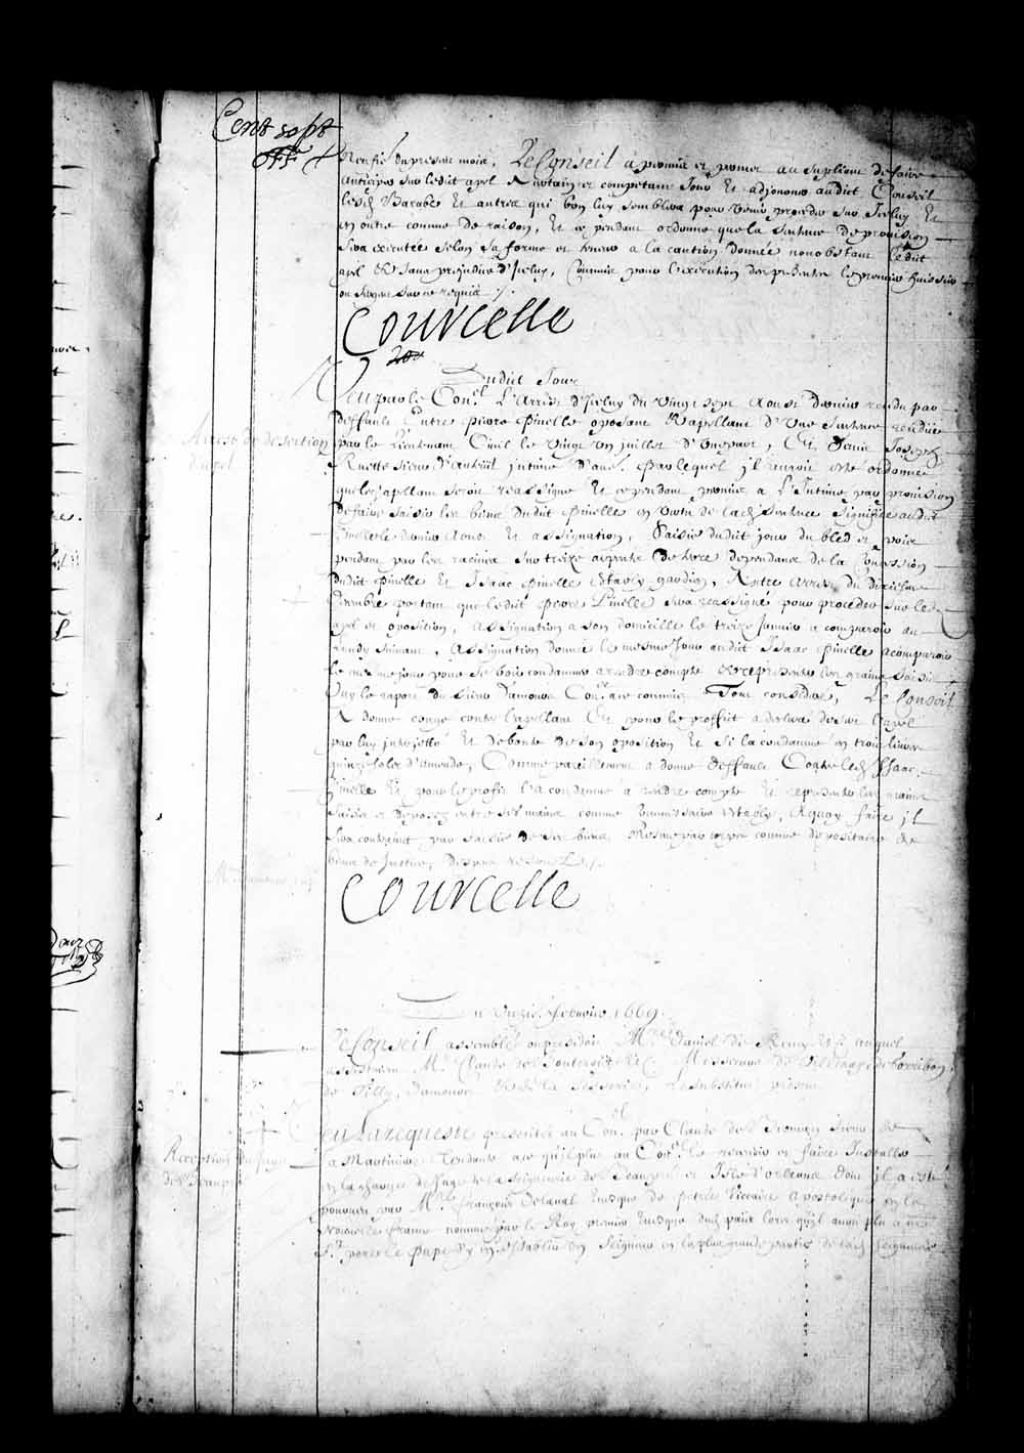 Cent sept
neufie. du present mois, Le Conseil a permis et permet au supliant de faire
anticiper sur ledit apel a certain et competant Jour Et adjonner audict Conseil
Barabé Et autres qui bon luy semblera pour venir proceder sur Iceluy Et
en outre comme de raison, Et cependant ordonne que la sentence de provision
sera executée selon sa forme et teneur a la caution donnée nonobstant ledit
apel Et sans prejudice d'Iceluy, Commis pour l'execution des presentes le premier huissier
ou sergent sur ce requis ./.
Courcelle
Dudict Jour
Veu par le Con.el L'Arrest d'Iceluy du Vingt sept Aoust dernier rendu par
deffault Entre Pierre Pinelle oposant Et apellant d'Une Sentence rendüe
Arrest de desertion
d'apel
par le Lieutenant Civil le Vingt un juillet d'Unepart, Et Denis Joseph
Ruette sieur d'Auteüil jntimé d'au.e Par lequel jl auroit esté ordonné
que led. apellant seroit reassigné Et cependant permis a l'Intimé par provision
de faire saisir les biens dudit Pinelle en vertu de lad. sentence Signiffié audit
Pinelle le dernier Aoust Et assignation, Saisie dudit jour du bled et poix
pendant par les racines sur treize arpents de terre dependans de la Concession
dudit Pinelle Et Isaac Pinelle Estably gardien, Autre arrest du dixiesme
Decembre portant que ledit Pierre Pinelle sera reassigné pour proceder sur led.
apel et oposition, Assignation a son domicille le treize Janvier a comparoir au
Lundy suivant, Assignation donnée le mesme Jour audit Isaac Pinelle a comparoir
le mesme jour pour se voir condamner a rendre compte Et representer les grains saisis
Ouy le raport du sieur Damours Con.er a ce commis Tout consideré, Le Conseil
A donné congé contre l'apellant Et pour le proffict a declaré desert l'apel
par luy jnterjetté Et debouté de son oposition Et si l'a condamné en trois livres
quinze solz d'amende, Comme pareillement a donné deffault Contre led. Isaac
Pinelle Et pour le profit l'a condamné a rendre compte Et representer les grains
saisis et deposez entre ses mains comme Commissaire Estably, A quoy faire jl
sera contraint par saisie de ses biens Mesme par corps comme depositaire de
biens de Justice, despens
Courcelle
Du Unzie. Febvrier 1669.
Le Conseil assemblé ou presidoit M.re Daniel de Remy Et auquel
assistoient M.rs Claude de Bouteroüe Messrs de Villeray, de Gorribon,
de Tilly, Damours Et de la Tesserie, Le substitut present
Reception
Veu la requeste presentée au Con.el par Claude de Bermen sieur de
la Martiniere Tendante a ce qu'il plust au Con.el le recevoir et faire Installer
en la charge de Juge de la Seigneurie de Beaupré et Isle d'orleans dont jl a esté
pourveu par M.re François de Laval Evesque de petrée Vicaire apostolique en la
Nouvelle france nommé par le Roy premier Evesque dud. païs lors qu'il aura plu a nre
S.t pere le Pape Seigneur en la plus grande partie de lad. Seigneurie